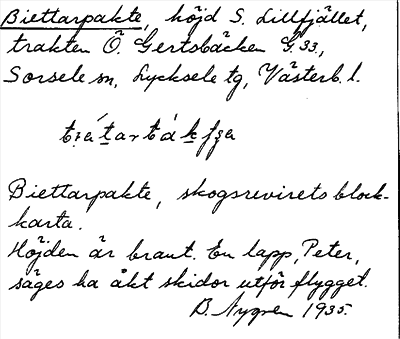 Biettarpakte, höjd S. Lillfjället,
trakten Ö. Gertsbäcken G 33,
Sorsele sn, Lycksele tg, Västerb. l.
Biettarpakte, skogsrevirets block-
karta.
Höjden är brant. En lapp, Peter,
säges ha åkt skidor utför flygget.
B. Nygren 1935.